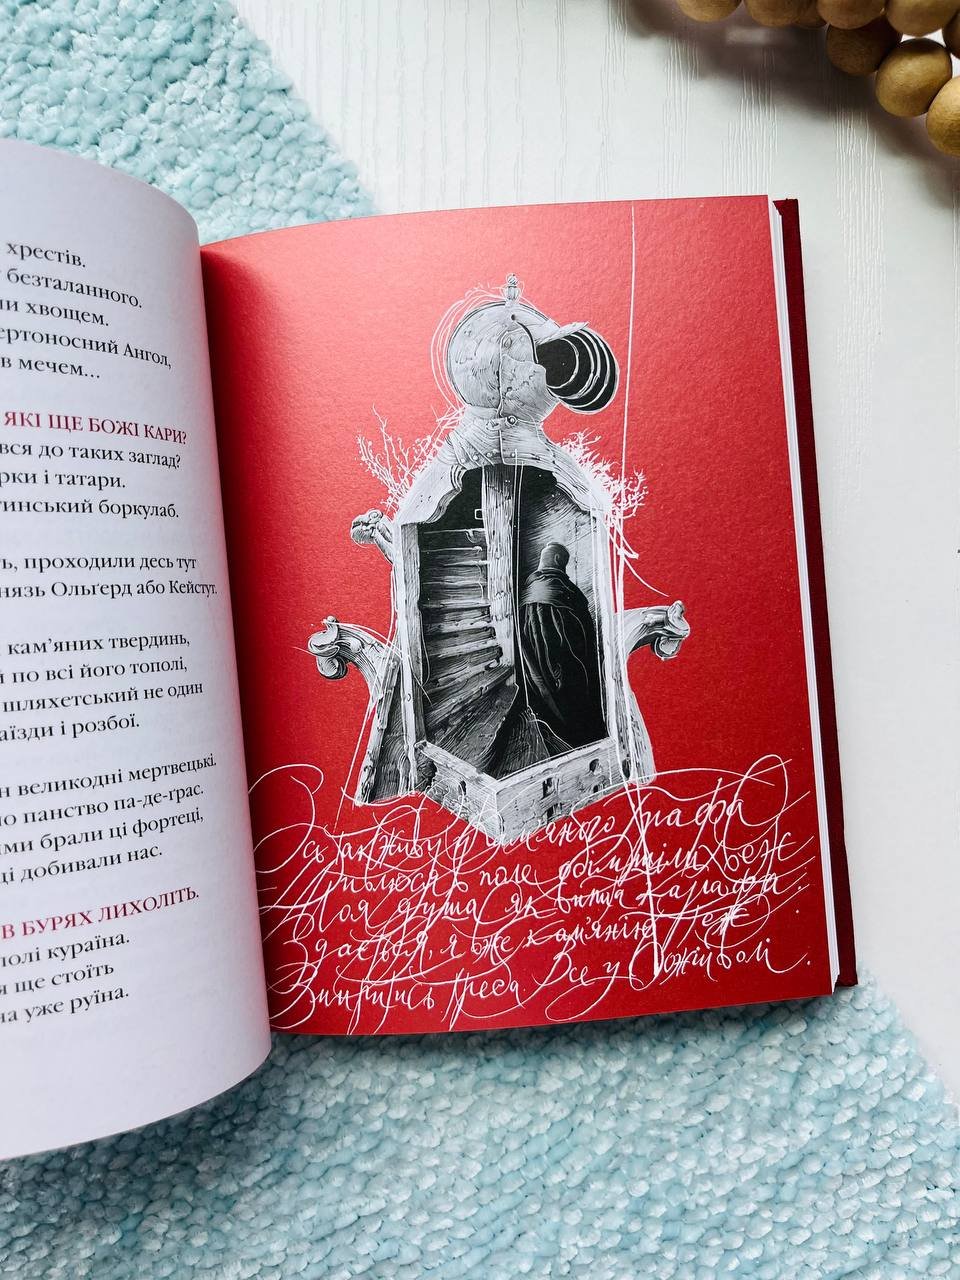 хрестів.
безталанного.
ли хвощем.
ертоносний Ангол,
в мечем...
ЯКІ ЩЕ БОЖІ КАРИ?
вся до таких заглад?
рки і татари.
гинський боркулаб.
ь, проходили десь тут
нязь Ольґерд або Кейстут.
кам’яних твердинь,
й по всі його тополі,
шляхетський не один
аїзди і розбої.
н великодні мертвецькі.
о панство па-де-ґрас.
ими брали ці фортеці,
ці добивали нас.
В БУРЯХ ЛИХОЛІТЬ.
полі кураїна.
я ще стоїть
на уже руїна.
Ось так живу у Кам’яного Графа
Дивлюся в поле обімшілих веж
Моя душа як вітша
Здається, я вже кам’янію теж
Змирись, гребо. Все у Божій волі.